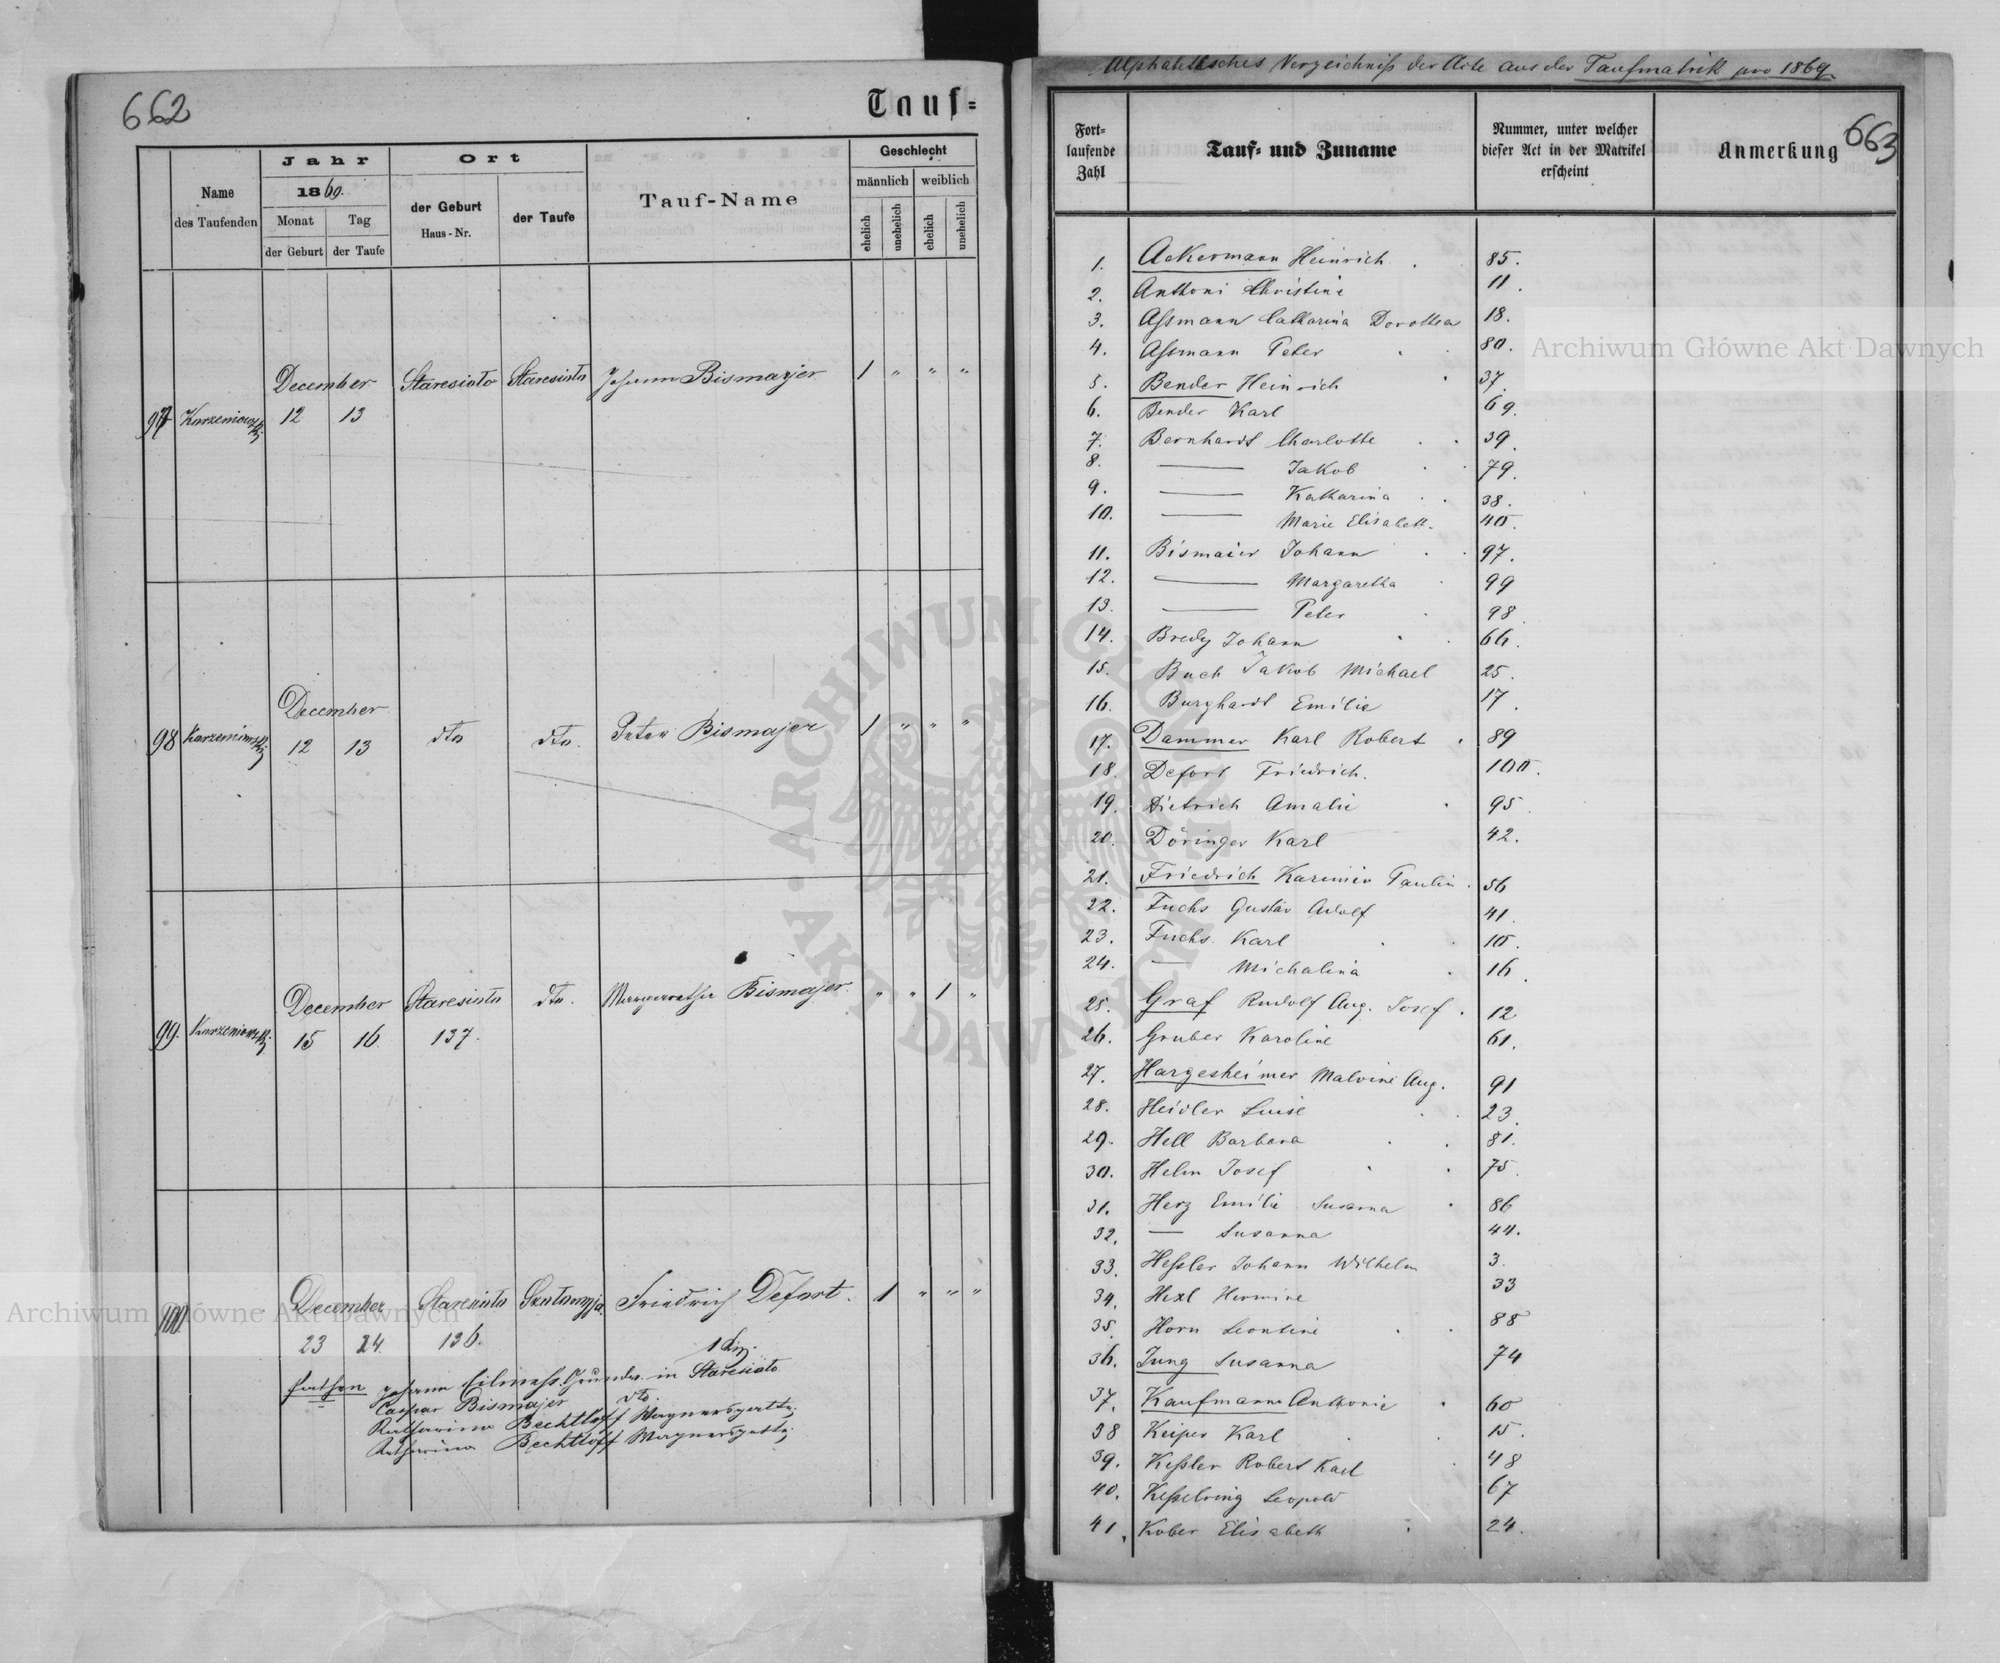 662
Tauf=
Name des Taufenden
Jahr
1869.
Monat
Tag
der Geburt
der Taufe
Ort
der Geburt
Haus-Nr.
der Taufe
Tauf-Name
Geschlecht
männlich
weiblich
ehelich
unehelich
ehelich
unehelich
97 Korzeniowski December 12 13 Staresioto Staresioto Johann Bismajer 1 " " "
98 Korzeniowski December 12 13 dto dto. Peter Bismajer 1 " " "
99. Korzeniowski December 15 16 Staresioto 137. dto. Margaretha Bismajer. " " 1 "
100 December 23 24. Staresioto 136. Friedrich Defort. 1 " " "
Pathen Johann in Staresioto
Caspar Bismajer dto.
Katharina Bechtloff
Katharina Bechtloff
Alphabetisches Verzeichniß der Acte aus der Taufmatrik pro 1869.
663
Fort-
laufende
Zahl
Tauf- und Zuname
Nummer, unter welcher
dieser Act in der Matrikel
erscheint
Anmerkung
1. Ackermann Heinrich 85.
2. Anthoni Christine 11.
3. Aßmann Catharina Dorothea 18.
4. Aßmann Peter 80.
5. Bender Heinrich 37.
6. Bender Karl 69.
7. Bernhardt Charlotte 39.
8. — Jakob 79.
9. — Katharina 38.
10. — Marie Elisabeth. 40.
11. Bismaier Johann 97.
12. — Margaretha 99
13. — Peter 98
14. Bredy Johann 66.
15. Buch Jakob Michael 25.
16. Burghardt Emilie 17.
17. Dammer Karl Robert 89
18. Defort Friedrich. 100.
19. Dietrich Amalie 95
20. Döringer Karl 42.
21. Friedrich Kazimir Paulin 56
22. Fuchs Gustav Adolf 41
23. Fuchs Karl 10.
24. — Michalina 16
25. Graf Rudolf Aug. Josef 12
26. Gruber Karoline 61.
27. Hargesheimer Malvine Aug. 91
28. Heidler Luise 23
29. Hell Barbara 81.
30. Helm Josef 75.
31. Herz Emilie Susanna 86
32. — Susanna 44.
33. Heßler Johann Wilhelm 3.
34. Hexl Hermine 33
35. Horn Leontine 88
36. Jung Susanna 74
37. Kaufmann Anthonie 60
38 Keiper Karl 15.
39. Keßler Robert Karl 48
40. Keßelring Leopold 67
41. Kober Elisabeth 24.
Archiwum Główne Akt Dawnych
Archiwum Główne Akt Dawnych
ARCHIWUM GŁÓWNE AKT DAWNYCH